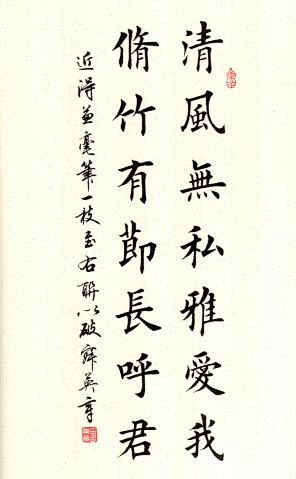 清風無私雅愛我
脩竹有節長呼君
近得兼毫筆一枝右聯以破英章